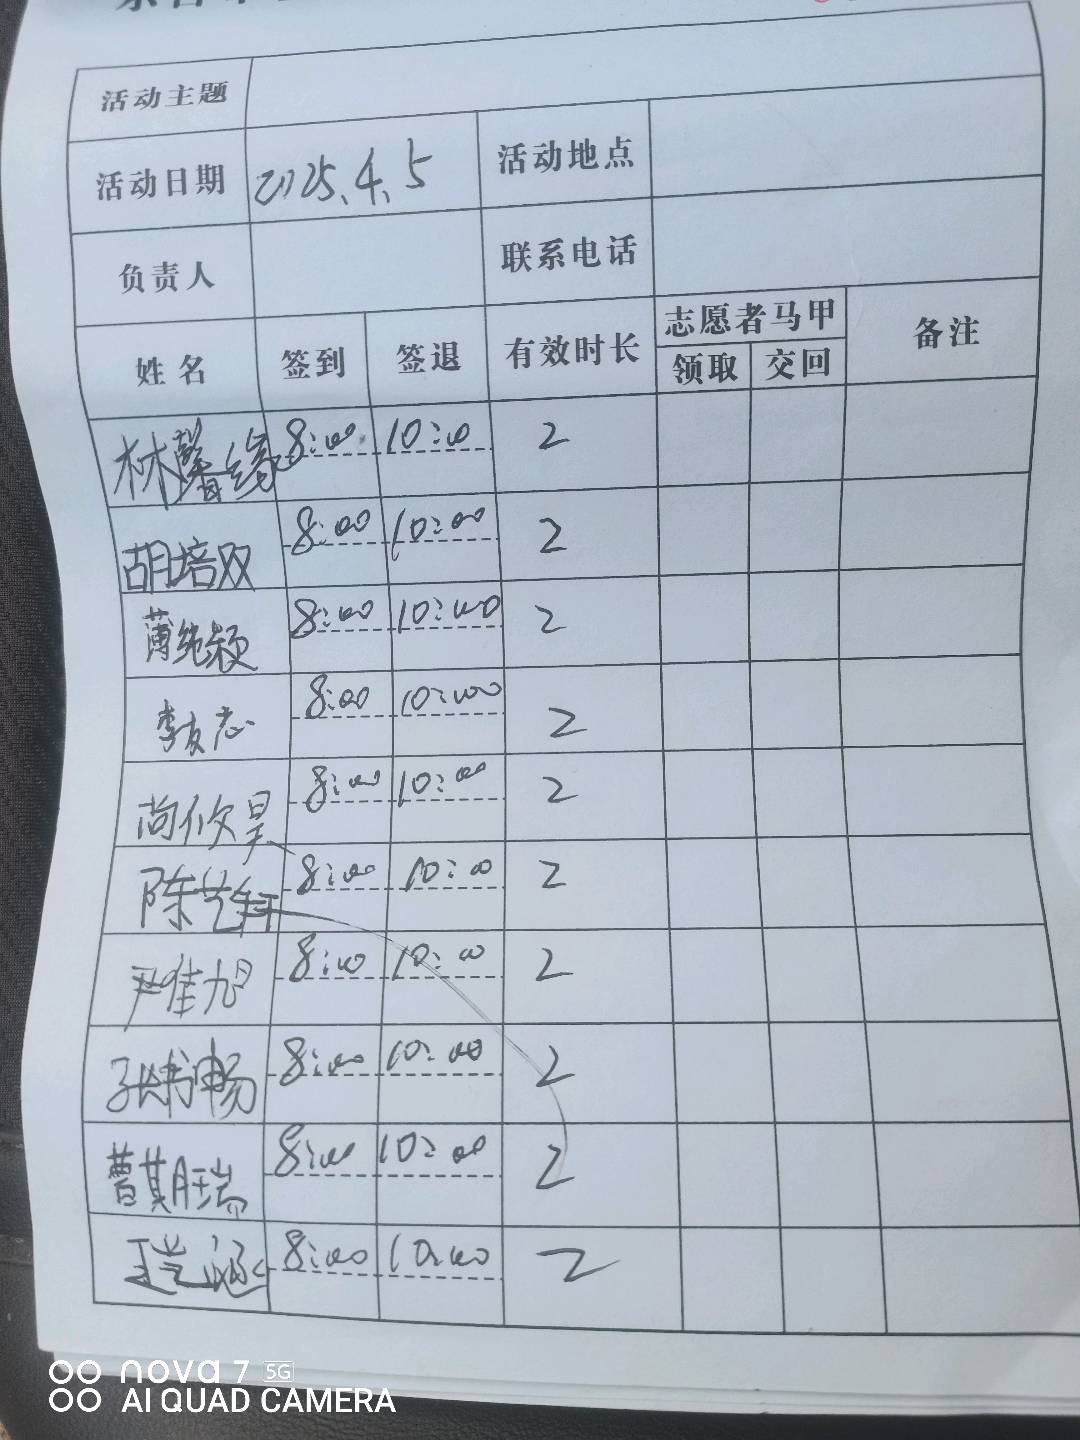 活动主题
活动日期 2025.4.5 活动地点
负责人 联系电话
姓名 签到 签退 有效时长 志愿者马甲 备注
领取 交回
林馨缘 8:00 10:00 2
胡培双 8:00 10:00 2
薄纯颖 8:00 10:00 2
李友志 8:00 10:00 2
尚欣昊 8:00 10:00 2
陈艺轩 8:00 10:00 2
尹佳旭 8:00 10:00 2
8:00 10:00 2
曹其瑞 8:00 10:00 2
8:00 10:00 2
nova 7 5G
AI QUAD CAMERA